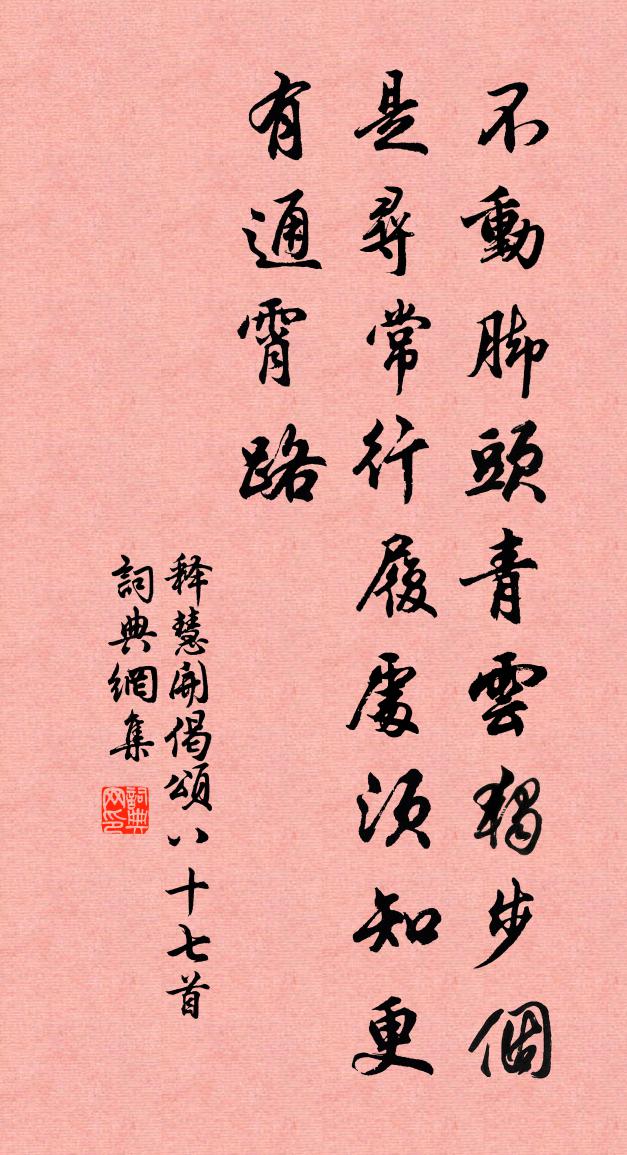 不動脚頭青雲獨步個
是尋常行履處須知更
有通霄路
释慧開偈頌八十七首
詞典網集
詞典網印